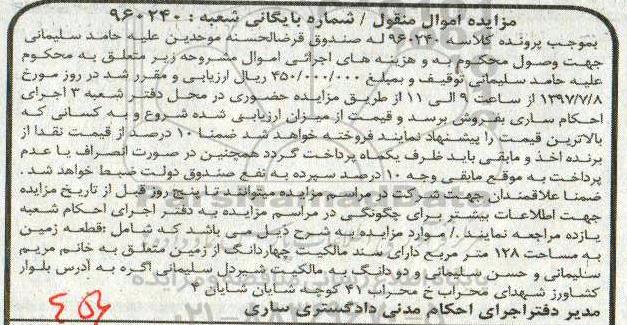 مزایده اموال منقول / شماره بایگانی شعبه : ۹۶۰۲۴۰
بموجب پرونده کلاسه ۹۶۰۲۴۰ له صندوق قرضالحسنه موحدین علیه حامد سلیمانی
جهت وصول محکوم به و هزینه های اجرائی اموال مشروحه زیر متعلق به محکوم
علیه حامد سلیمانی توقیف و بمبلغ ۴۵۰/۰۰۰/۰۰۰ ریال ارزیابی و مقرر شد در روز مورخ
۱۳۹۷/۷/۸ از ساعت ۹ الی ۱۱ از طریق مزایده حضوری در محل دفتر شعبه ۳ اجرای
احکام ساری بفروش برسد و قیمت از میزان ارزیابی شده شروع و به کسانی که
بالاترین قیمت را پیشنهاد نمایند فروخته خواهد شد ضمنا ۱۰ درصد از قیمت نقدا از
برنده اخذ و مابقی باید ظرف یکماه پرداخت گردد همچنین در صورت انصراف یا عدم
پرداخت به موقع مابقی وجه ۱۰ درصد سپرده به نفع صندوق دولت ضبط خواهد شد .
ضمنا علاقمندان جهت شرکت در مراسم مزایده میتوانند تا پنج روز قبل از تاریخ مزایده
جهت اطلاعات بیشتر برای چگونگی در مراسم مزایده به دفتر اجرای احکام شعبه
یازده مراجعه نمایند ./ موارد مزایده به شرح ذیل می باشد که شامل :قطعه زمین
به مساحت ۱۲۸ متر مربع دارای سند مالکیت چهاردانگ از زمین متعلق به خانم مریم
سلیمانی و حسن سلیمانی و دو دانگ به مالکیت شیردل سلیمانی اگره به آدرس بلوار
کشاورز شهدای محراب خ محراب ۴۱ کوچه شایان شایان ۴
مدیر دفتراجرای احکام مدنی دادگستری ساری